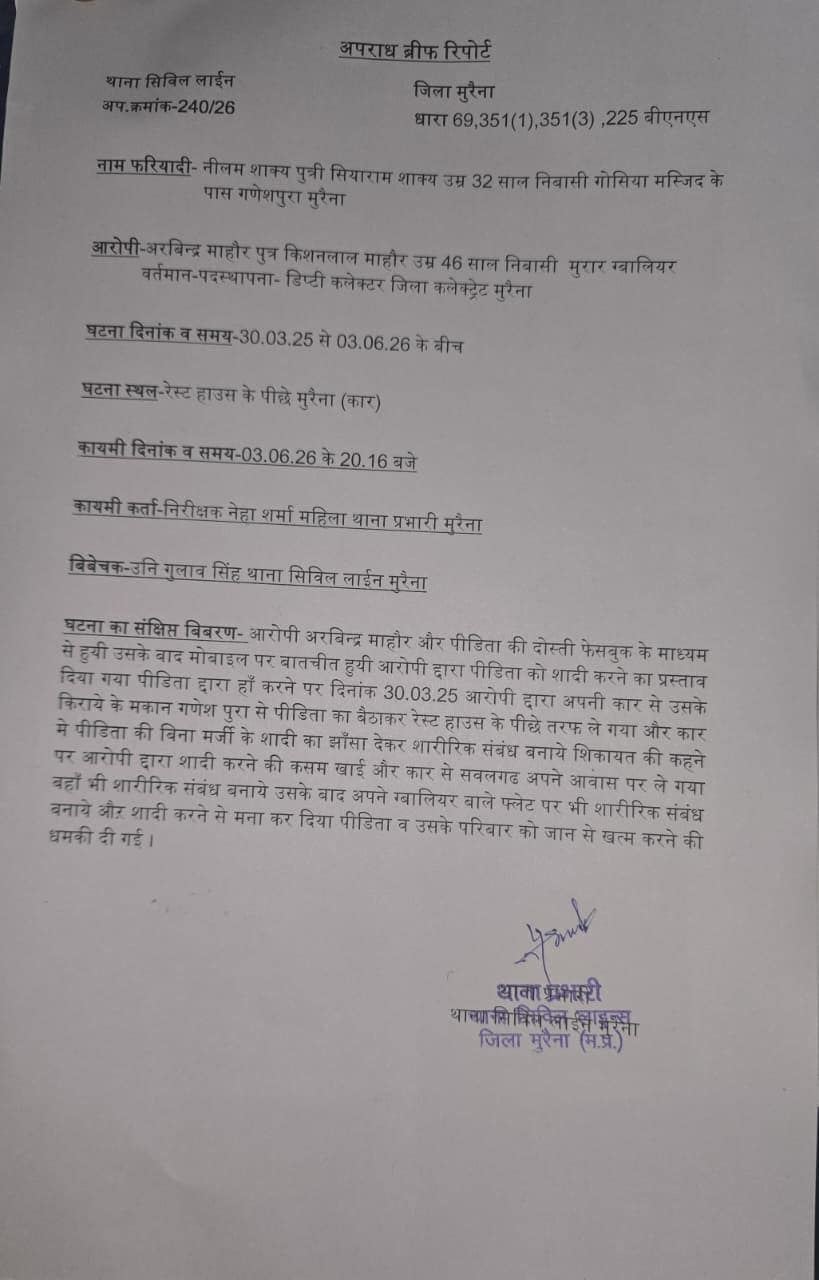 अपराध ब्रीफ रिपोर्ट
थाना सिविल लाईन
जिला मुरैना
अप.क्रमांक-240/26
धारा 69,351(1),351(3) ,225 बीएनएस
नाम फरियादी- नीलम शाक्य पुत्री सियाराम शाक्य उम्र 32 साल निवासी गोसिया मस्जिद के
पास गणेशपुरा मुरैना
आरोपी-अरबिन्द्र माहौर पुत्र किशनलाल माहौर उम्र 46 साल निवासी मुरार ग्वालियर
वर्तमान-पदस्थापना- डिप्टी कलेक्टर जिला कलेक्ट्रेट मुरैना
घटना दिनांक व समय-30.03.25 से 03.06.26 के बीच
घटना स्थल-रेस्ट हाउस के पीछे मुरैना (कार)
कायमी दिनांक व समय-03.06.26 के 20.16 बजे
कायमी कर्ता-निरीक्षक नेहा शर्मा महिला थाना प्रभारी मुरैना
बिबेचक-उनि गुलाव सिंह थाना सिविल लाईन मुरैना
घटना का संक्षिप्त बिबरण- आरोपी अरबिन्द्र माहौर और पीडिता की दोस्ती फेसबुक के माध्यम
से हुयी उसके बाद मोबाइल पर बातचीत हुयी आरोपी द्वारा पीडिता को शादी करने का प्रस्ताव
दिया गया पीडिता द्वारा हाँ करने पर दिनांक 30.03.25 आरोपी द्वारा अपनी कार से उसके
किराये के मकान गणेश पुरा से पीडिता का बैठाकर रेस्ट हाउस के पीछे तरफ ले गया और कार
मे पीडिता की बिना मर्जी के शादी का झाँसा देकर शारीरिक संबंध बनाये शिकायत की कहने
पर आरोपी द्वारा शादी करने की कसम खाई और कार से सवलगढ अपने आवास पर ले गया
बहाँ भी शारीरिक संबंध बनाये उसके बाद अपने ग्बालियर बाले फ्लेट पर भी शारीरिक संबंध
बनाये और शादी करने से मना कर दिया पीडिता व उसके परिबार को जान से खत्म करने की
धमकी दी गई।
थाना प्रभारी
थाना सिविल लाईन मुरैना
जिला मुरैना (म.प्र.)